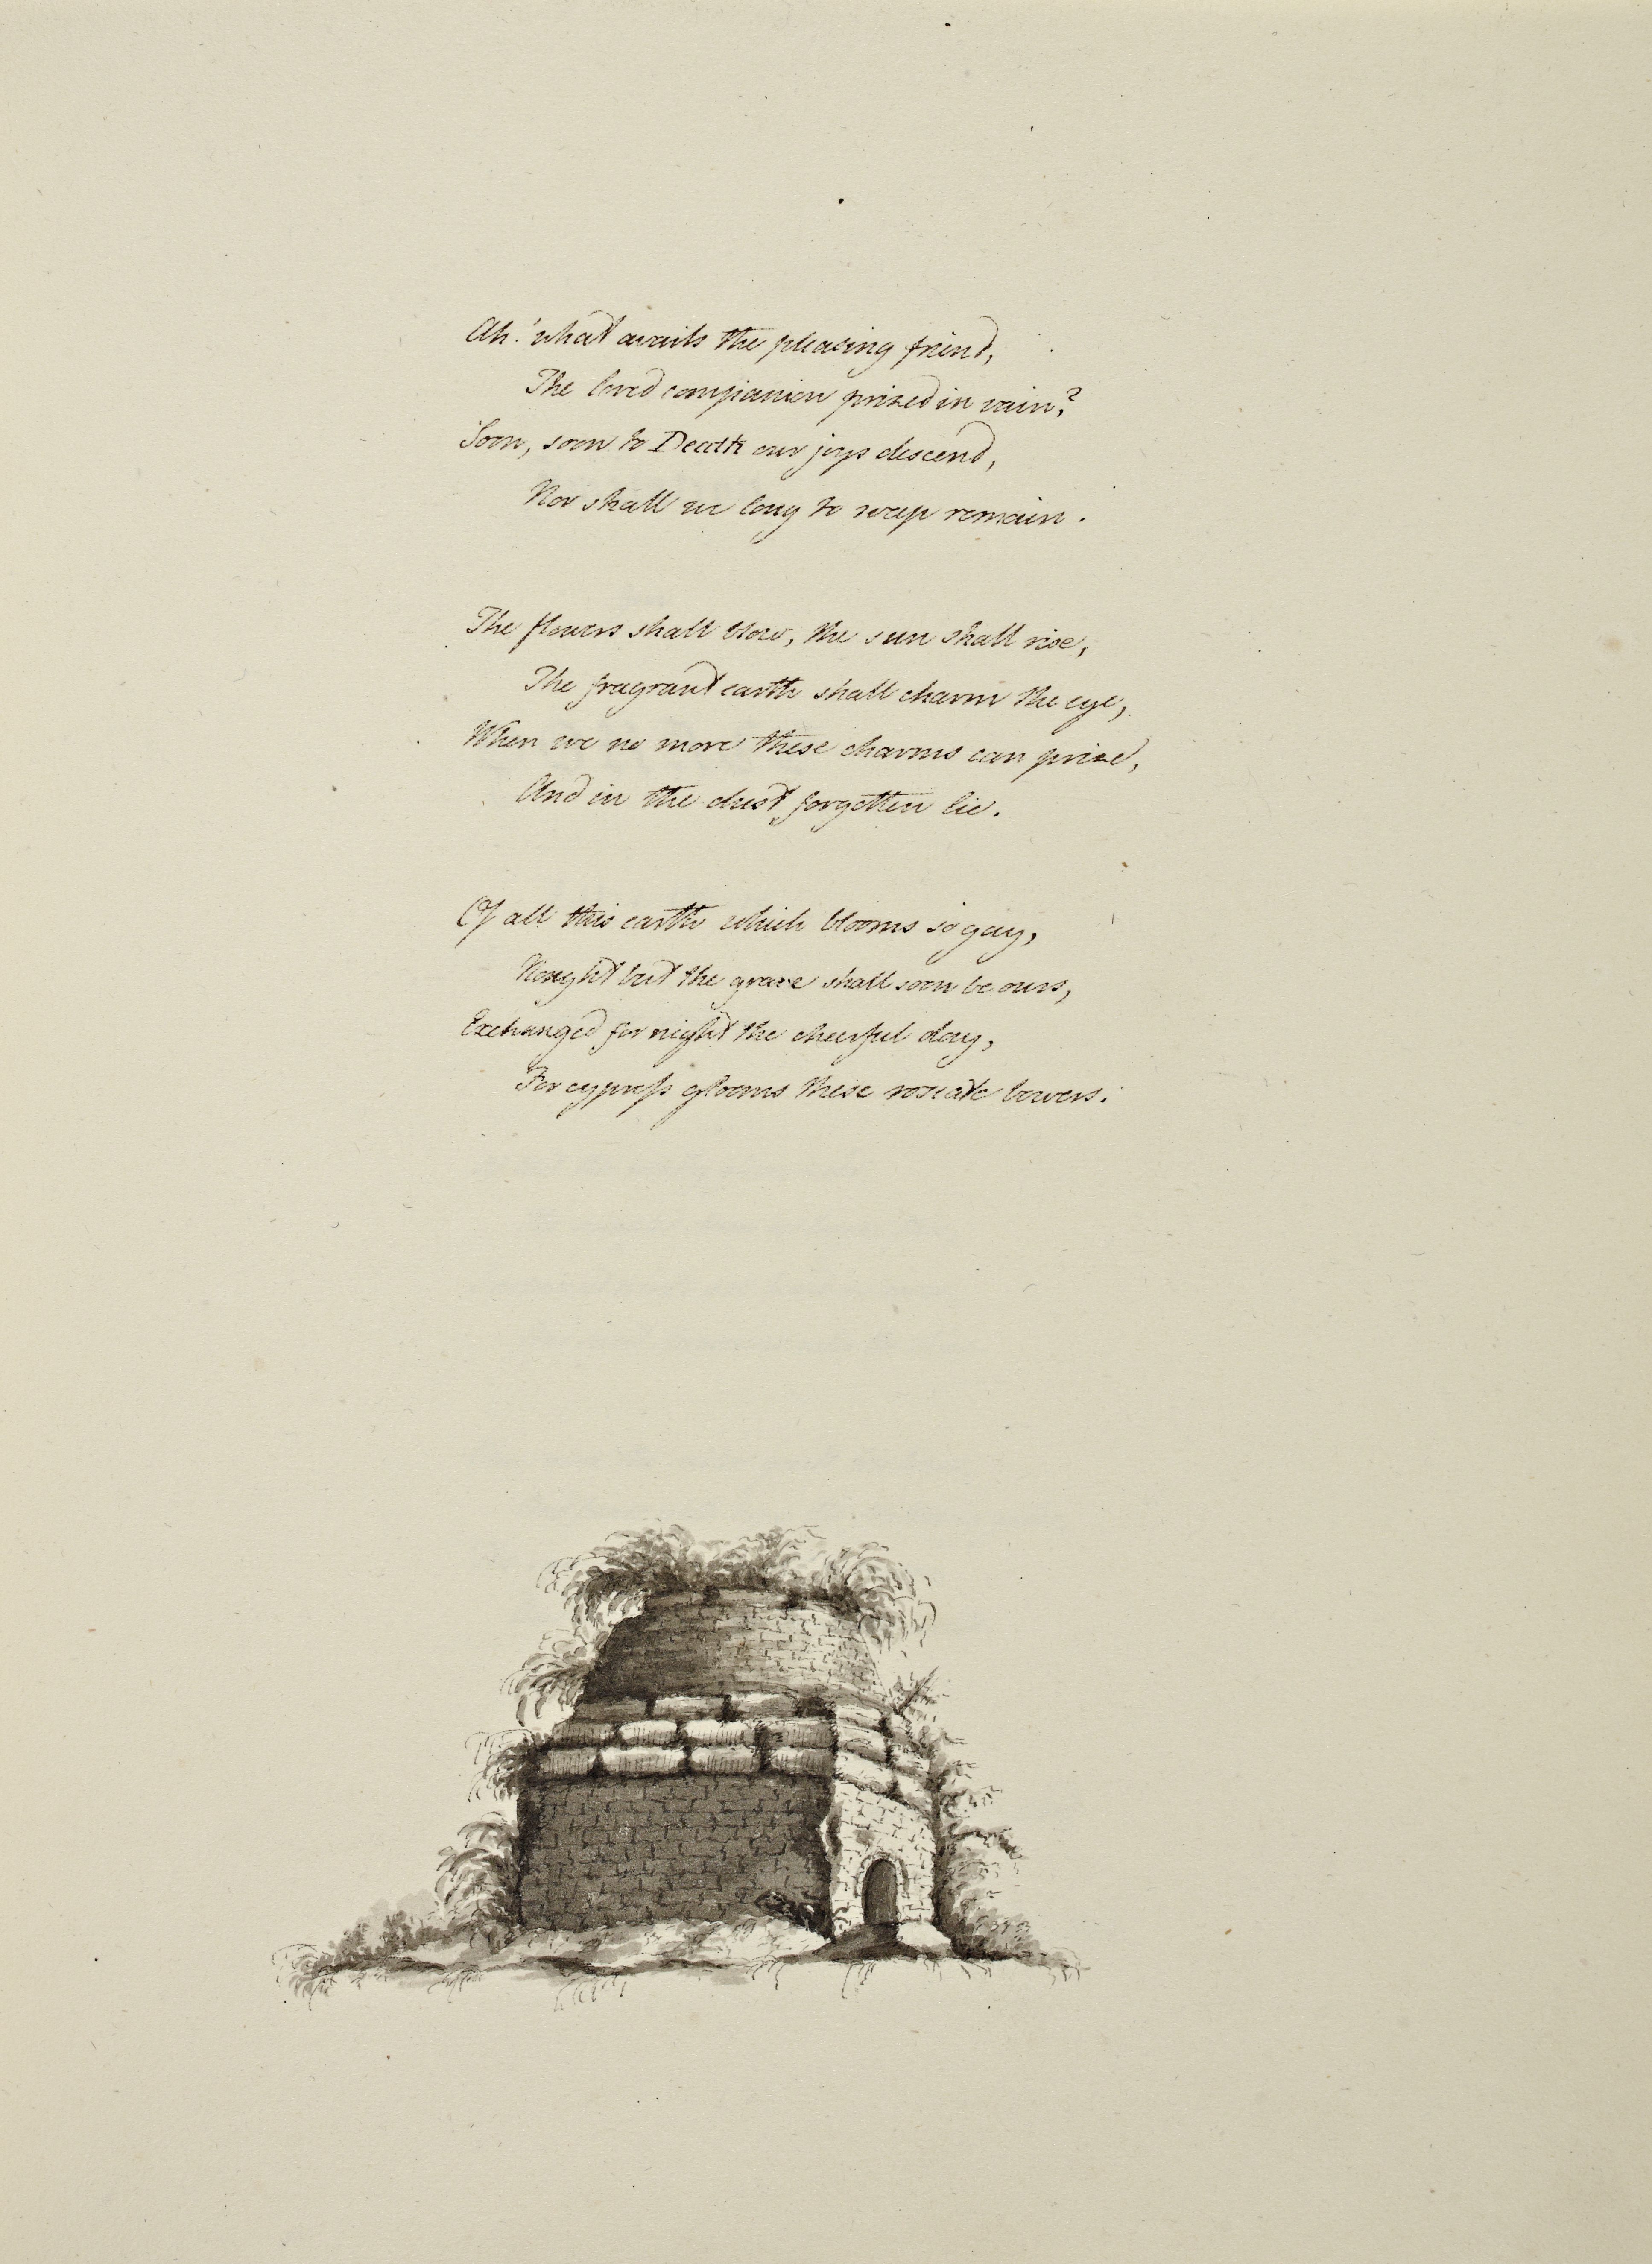 Ah! what avails the pleasing freind,
The loved companion prized in vain?
Soon, soon to Death our joys descend,
Nor shall we long to weep remain.
The flowers shall blow, the sun shall rise,
The fragrant earth shall charm the eye,
When we no more these charms can prize,
And in the dust forgotten lie.
Of all this earth which blooms so gay,
Nought but the grave shall soon be ours,
Exchanged for night the cheerful day,
For cypress glooms these roseate bowers.